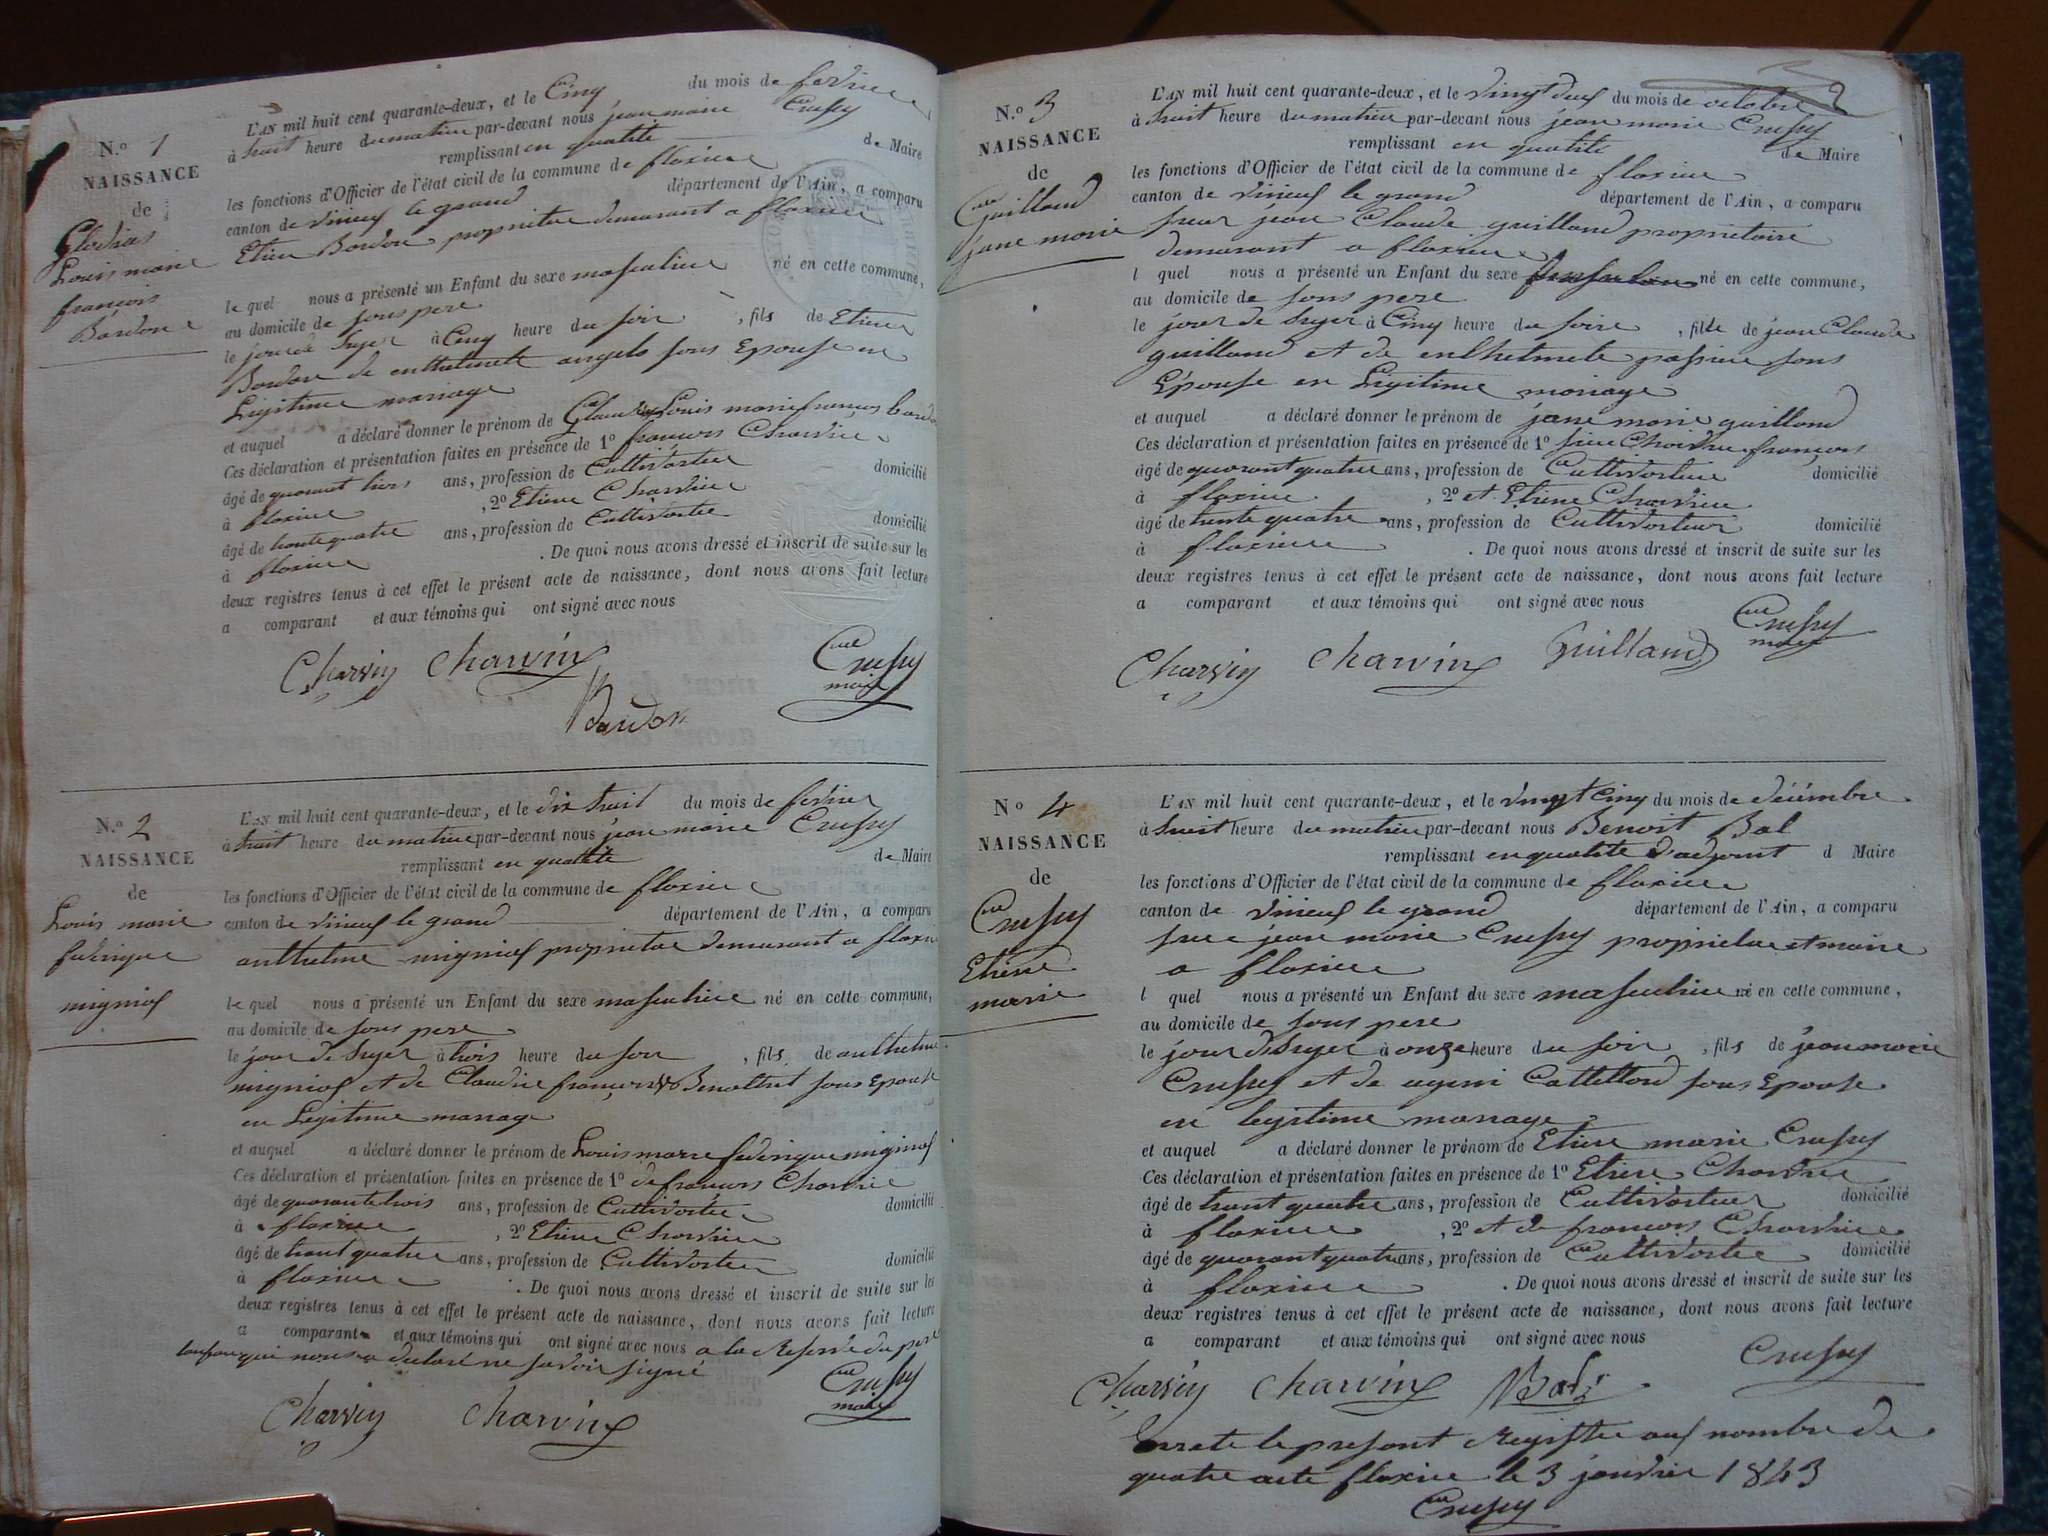 N.o 1
NAISSANCE
de
Glodias
Louis marie
françois
Bardon
L'AN mil huit cent quarante-deux, et le Cinq du mois de fevrier
à huit heure du matin par-devant nous jean marie Crussy
remplissant en qualité de Maire
les fonctions d'Officier de l'état civil de la commune de flaxieu
canton de virieu le grand département de l'Ain, a comparu
Etiene Bardon propriétaire demurant a flaxieu
le quel nous a présenté un Enfant du sexe masculien né en cette commune,
au domicile de sons pere
le jour de hyer à Cinq heure du soir , fils de Etiene
Bardon de anthelmete angelo sons Epouse en
Legitime mariage
et auquel a déclaré donner le prénom de Louis marie françois bardon
Ces déclaration et présentation faites en présence de 1o françois Charvin
âgé de quarant trois ans, profession de Cultivateur domicilié
à flaxieu , 2o Etiene Charvin
âgé de trante quatre ans, profession de Cultivateur domicilié
à flaxieu . De quoi nous avons dressé et inscrit de suite sur les
deux registres tenus à cet effet le présent acte de naissance, dont nous avons fait lecture
a comparant et aux témoins qui ont signé avec nous
Charvin Charvin Crussy
maire
Bardon
N.o 2
NAISSANCE
de
Louis marie
federique
migniot
L'AN mil huit cent quarante-deux, et le dix huit du mois de fevrier
à huit heure du matin par-devant nous jean marie Crussy
remplissant en qualité de Maire
les fonctions d'Officier de l'état civil de la commune de flaxieu
canton de virieu le grand département de l'Ain, a comparu
anthelme migniot proprietaire demurant a flaxieu
le quel nous a présenté un Enfant du sexe masculien né en cette commune,
au domicile de sons pere
le jour de hyer à trois heure du soir , fils de anthelme
migniot et de Claudine françoise Benoltrut sons Epouse
en Legitime mariage
et auquel a déclaré donner le prénom de Louis marie federique migniot
Ces déclaration et présentation faites en présence de 1o de françois Charvin
âgé de quarante trois ans, profession de Cultivateur domicilié
à flaxieu , 2o Etiene Charvin
âgé de trant quatre ans, profession de Cultivateur domicilié
à flaxieu . De quoi nous avons dressé et inscrit de suite sur les
deux registres tenus à cet effet le présent acte de naissance, dont nous avons fait lecture
a comparant et aux témoins qui ont signé avec nous a la Reserve du pere
qui nous a declaré ne savoir signé
Crussy
maire
Charvin Charvin
N.o 3
NAISSANCE
de
Guilland
jane marie
L'AN mil huit cent quarante-deux, et le vingt deux du mois de octobre
à huit heure du matin par-devant nous jean marie Crussy
remplissant en qualité de Maire
les fonctions d'Officier de l'état civil de la commune de flaxieu
canton de virieu le grand département de l'Ain, a comparu
sieur jean Claude guilland proprietaire
demurant a flaxieu
l quel nous a présenté un Enfant du sexe né en cette commune,
au domicile de sons pere
le jour de hyer à Cinq heure du soire , fille de jean Claude
guilland et de enthelmete passien sons
Epouse en Legitime mariage
et auquel a déclaré donner le prénom de jane marie guilland
Ces déclaration et présentation faites en présence de 1o sieur Charvin françois
âgé de quarant quatre ans, profession de Cultivateur domicilié
à flaxieu , 2o et Etiene Charvin
âgé de trente quatre ans, profession de Cultivateur domicilié
à flaxieu . De quoi nous avons dressé et inscrit de suite sur les
deux registres tenus à cet effet le présent acte de naissance, dont nous avons fait lecture
a comparant et aux témoins qui ont signé avec nous
Charvin Charvin Guilland Crussy
maire
No 4
NAISSANCE
de
Crussy
Etiene
marie
L'AN mil huit cent quarante-deux, et le vingt Cinq du mois de décembre
à huit heure du matin par-devant nous Benoit Bal
remplissant en qualité d'adjoint d Maire
les fonctions d'Officier de l'état civil de la commune de flaxieu
canton de virieu le grand département de l'Ain, a comparu
jean marie Crussy proprietaire et maire
a flaxieu
l quel nous a présenté un Enfant du sexe masculien né en cette commune,
au domicile de sons pere
le jour d'hyer à onze heure du soir , fils de jean marie
Crussy et de ageni Cattelland sons Epouse
en legitime mariage
et auquel a déclaré donner le prénom de Etiene marie Crussy
Ces déclaration et présentation faites en présence de 1o Etiene Charvin
âgé de trant quatre ans, profession de Cultivateur domicilié
à flaxieu , 2o et de françois Charvin
âgé de quarant quatre ans, profession de Cultivateur domicilié
à flaxieu . De quoi nous avons dressé et inscrit de suite sur les
deux registres tenus à cet effet le présent acte de naissance, dont nous avons fait lecture
a comparant et aux témoins qui ont signé avec nous
Charvin Charvin Bal Crussy
arrete le present Registre aus nombre de
quatre acte flaxieu le 3 janvier 1843
Crussy